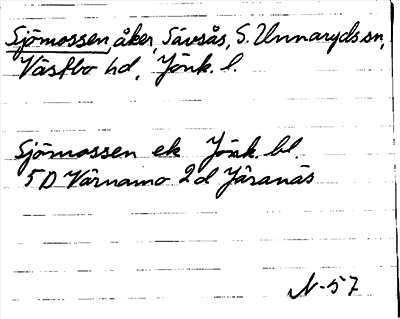 Sjömossen, åker, Sävsås, S. Unnaryds sn,
Västbo hd, Jönk. l.
Sjömossen ek Jönk. bl.
5D Värnamo 2d Järanäs
N-57